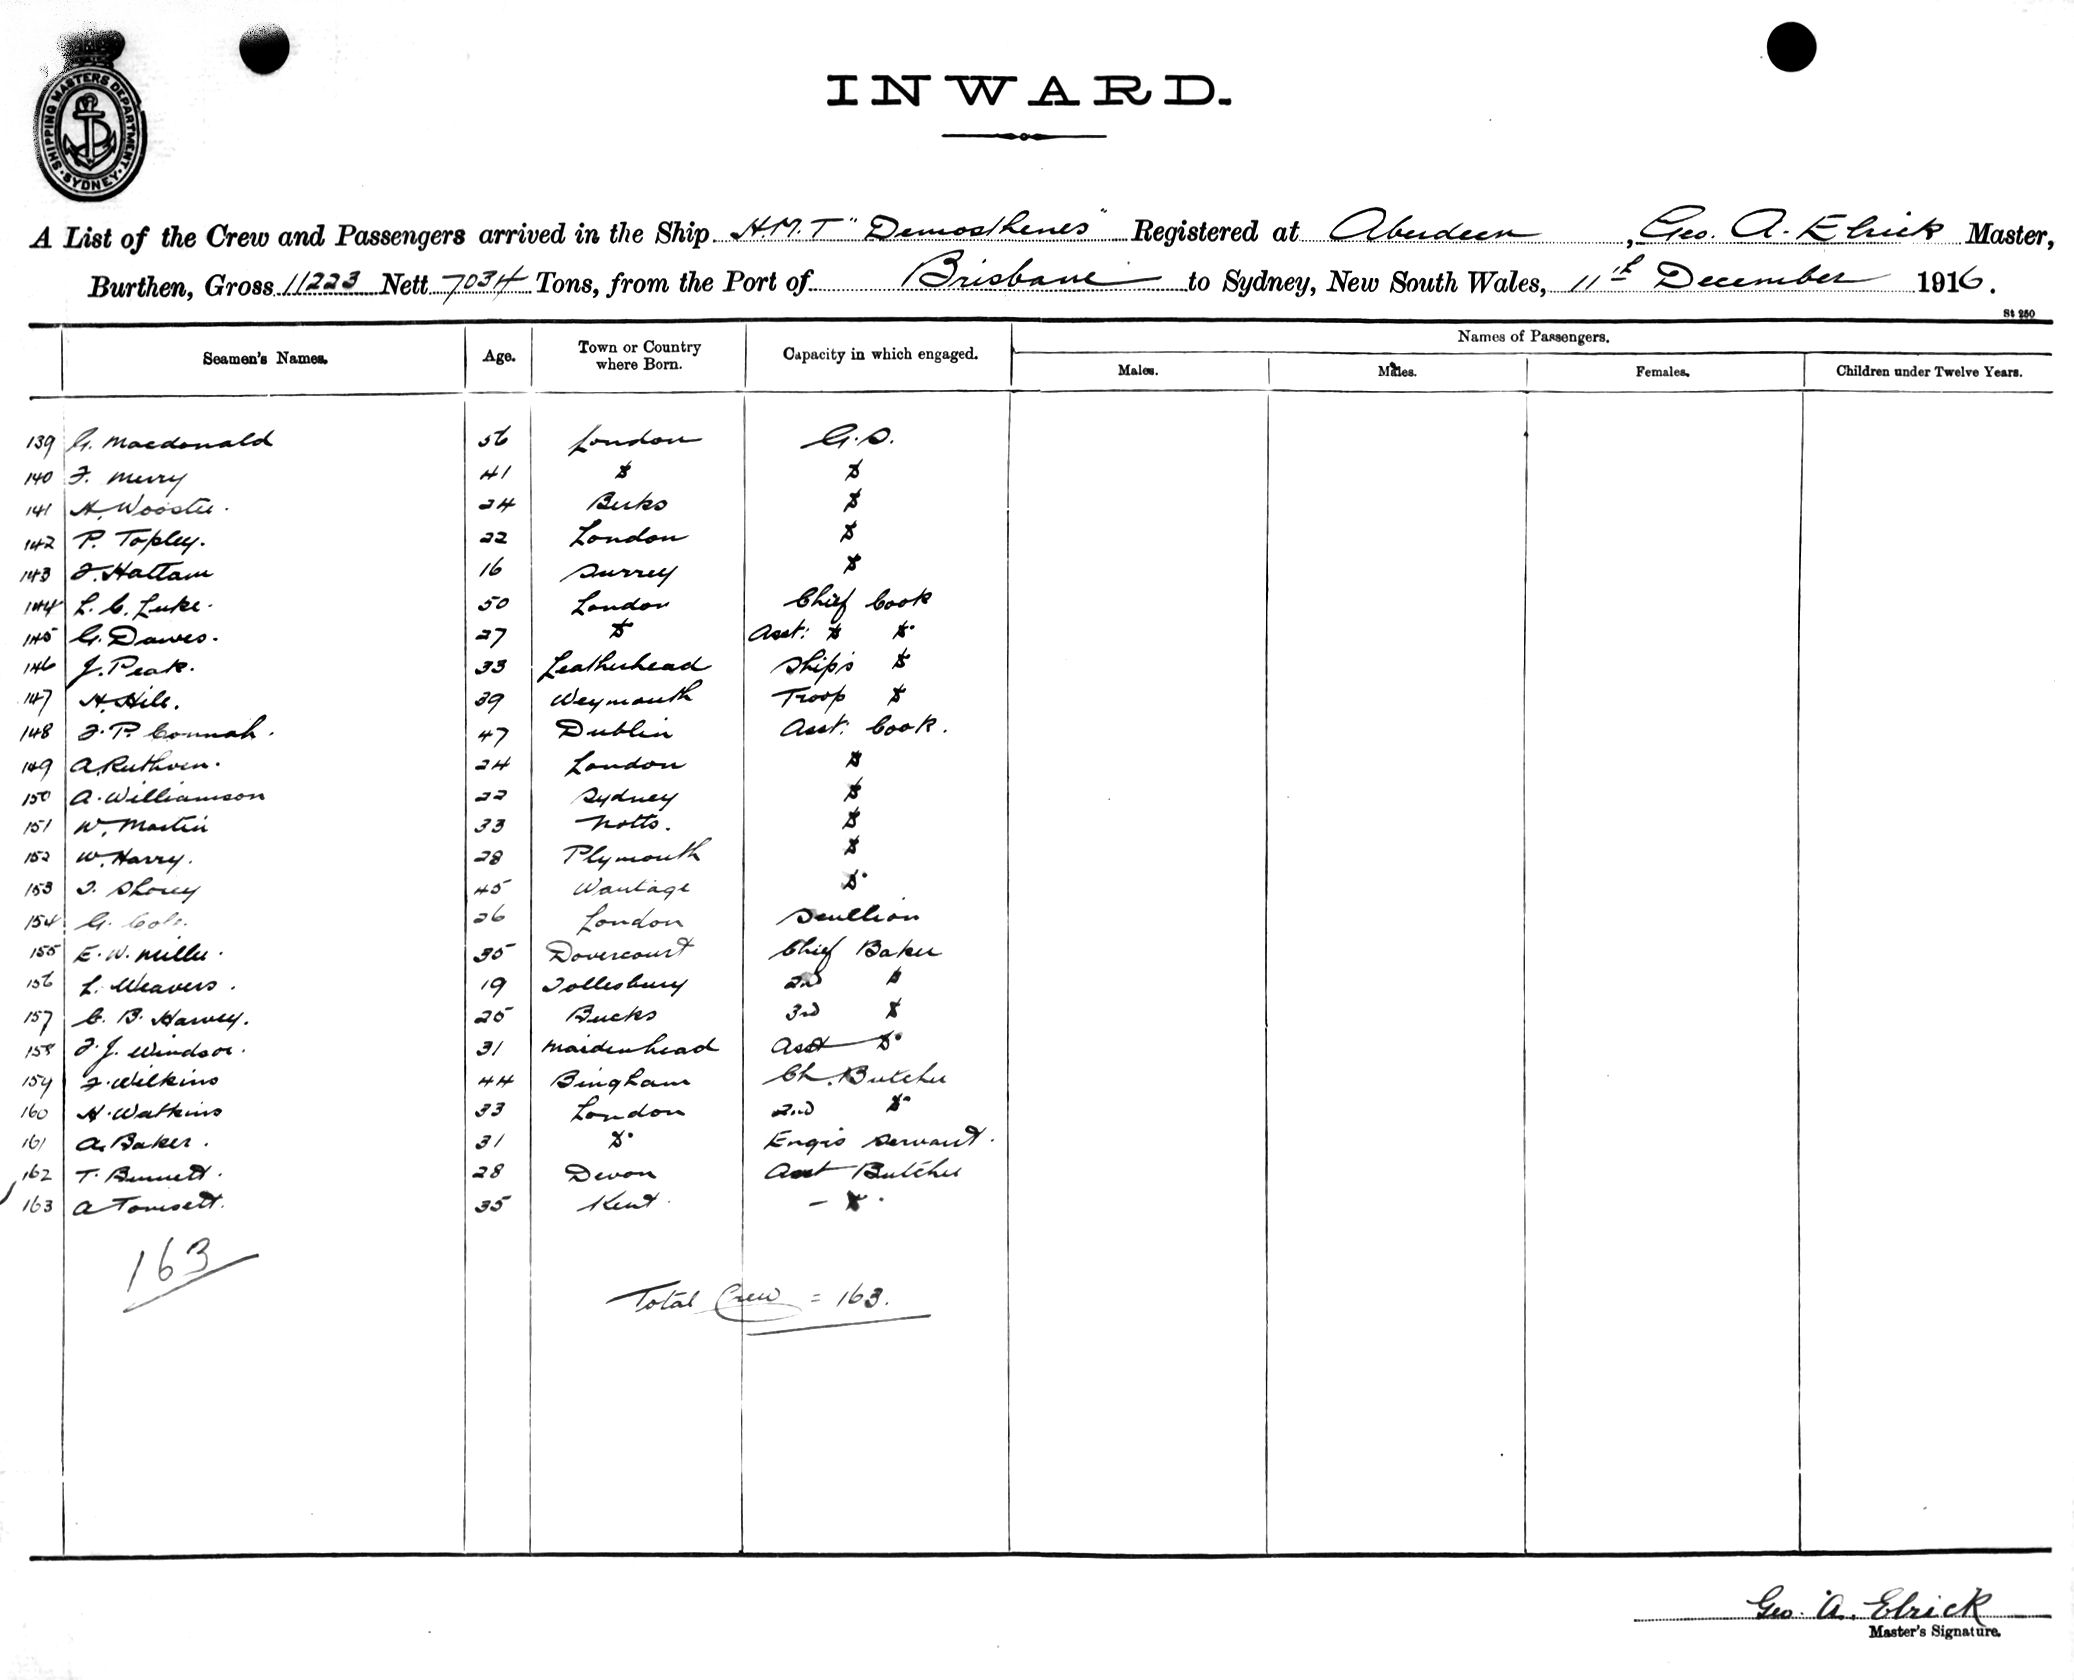 SHIPPING MASTERS DEPARTMENT · SYDNEY ·
INWARD.
A List of the Crew and Passengers arrived in the Ship H.M.T "Demosthenes" Registered at Aberdeen, Geo. A. Elrick Master,
Burthen, Gross 11223 Nett 7034 Tons, from the Port of Brisbane to Sydney, New South Wales, 11th December 1916.
St 250
Seamen's Names. Age. Town or Country where Born. Capacity in which engaged. Names of Passengers.
Males. Males. Females. Children under Twelve Years.
139 G. Macdonald 56 London G.S.
140 F. Merry 41 Do Do
141 H. Wooster. 24 Do
142 P. Topley. 22 London Do
143 F. Hattam 16 Surrey Do
144 L. C. Luke. 50 London Chief Cook
145 G. Dawes. 27 Do Asst: Do Do
146 J. Peak. 33 Leatherhead Ship's Do
147 H. Hill. 39 Weymouth Troop Do
148 F. P. Connah. 47 Dublin Asst: Cook.
149 A. Ruthven. 24 London Do
150 A. Williamson 22 Sydney Do
151 W. Martin 33 Notts. Do
152 W. Harry. 28 Plymouth Do
153 Shorey 45 Wantage Do
154 G. Cole. 26 London Scullion
155 E. W. Miller. 35 Dovercourt Chief Baker
156 L. Weavers. 19 Tollesbury 2nd Do
157 C. B. Harvey. 25 Bucks 3rd Do
158 F. J. Windsor. 31 Maidenhead Asst Do
159 F. Wilkins 44 Bingham Ch. Butcher
160 H. Watkins 33 London 2nd Do
161 A. Baker. 31 Do Engrs Servant.
162 T. Bennett. 28 Devon Asst Butcher
163 A Tomsett. 35 Kent. – Do.
163
Total Crew = 163.
Geo. A. Elrick
Master's Signature.